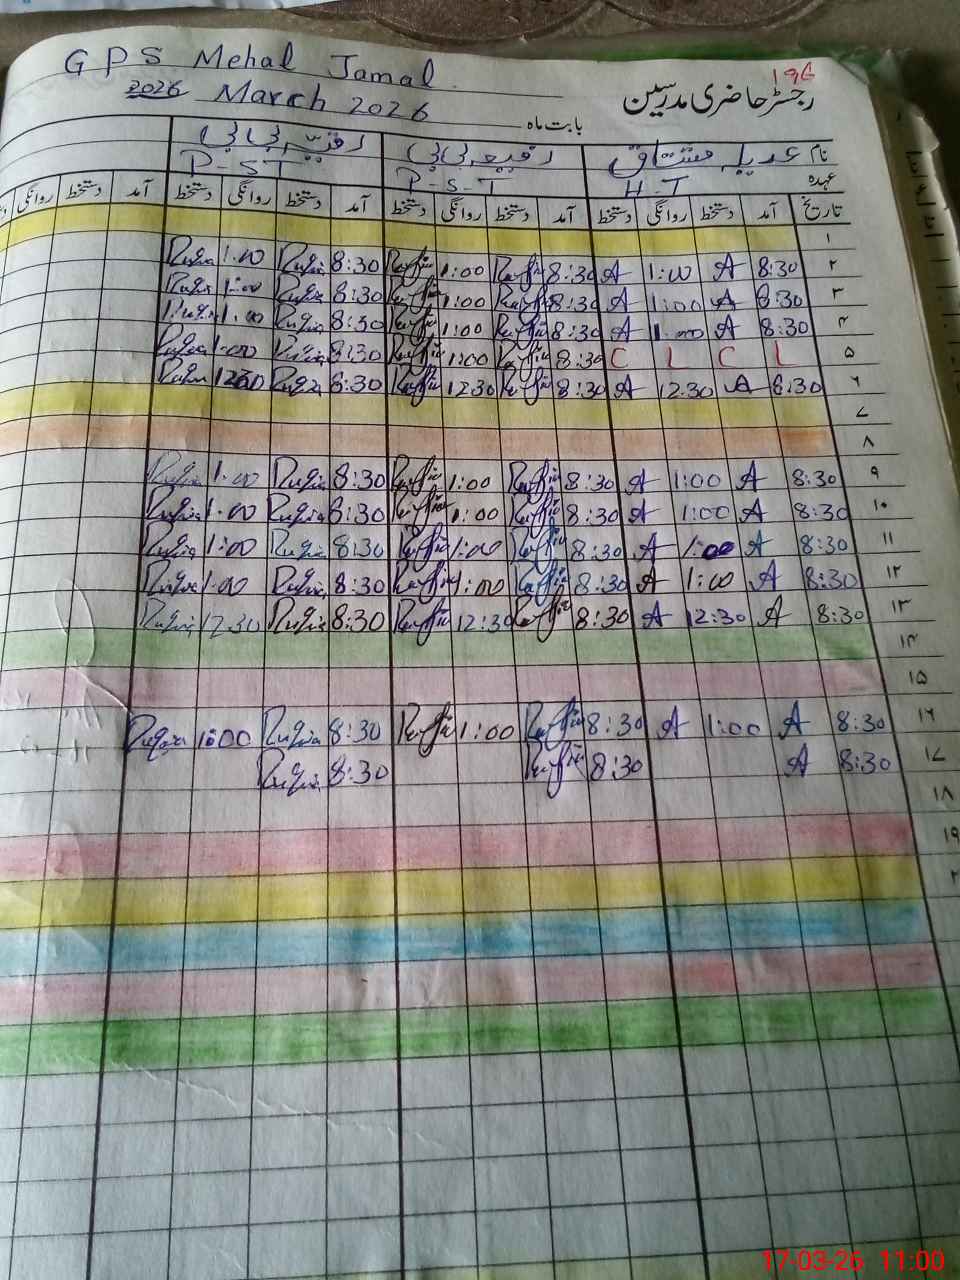 196
GPS Mehal Jamal
رجسٹر حاضری مدرسین
2026 March 2026
بابت ماہ
نام عدیلہ مشتاق رفیعہ بی بی رقیہ بی بی
عہدہ H-T P-S-T P-S-T
تاریخ آمد دستخط روانگی دستخط آمد دستخط روانگی دستخط آمد دستخط روانگی دستخط آمد دستخط روانگی
۱
۲ 8:30 A 1:00 A 8:30 Raffia 1:00 Raffia 8:30 Ruqia 1:00 Ruqia
۳ 8:30 A 1:00 A 8:30 Raffia 1:00 Raffia 8:30 Ruqia 1:00 Ruqia
۴ 8:30 A 1:00 A 8:30 Raffia 1:00 Raffia 8:30 Ruqia 1:00 Ruqia
۵ L C L C 8:30 Raffia 1:00 Raffia 8:30 Ruqia 1:00 Ruqia
۶ 8:30 A 12:30 A 8:30 Raffia 12:30 Raffia 8:30 Ruqia 12:30 Ruqia
۷
۸
۹ 8:30 A 1:00 A 8:30 Raffia 1:00 Raffia 8:30 Ruqia 1:00 Ruqia
۱۰ 8:30 A 1:00 A 8:30 Raffia 1:00 Raffia 8:30 Ruqia 1:00 Ruqia
۱۱ 8:30 A 1:00 A 8:30 Raffia 1:00 Raffia 8:30 Ruqia 1:00 Ruqia
۱۲ 8:30 A 1:00 A 8:30 Raffia 1:00 Raffia 8:30 Ruqia 1:00 Ruqia
۱۳ 8:30 A 12:30 A 8:30 Raffia 12:30 Raffia 8:30 Ruqia 12:30 Ruqia
۱۴
۱۵
۱۶ 8:30 A 1:00 A 8:30 Raffia 1:00 Raffia 8:30 Ruqia 1:00 Ruqia
۱۷ 8:30 A 8:30 Raffia 8:30 Ruqia
۱۸
۱۹
17-03-26 11:00